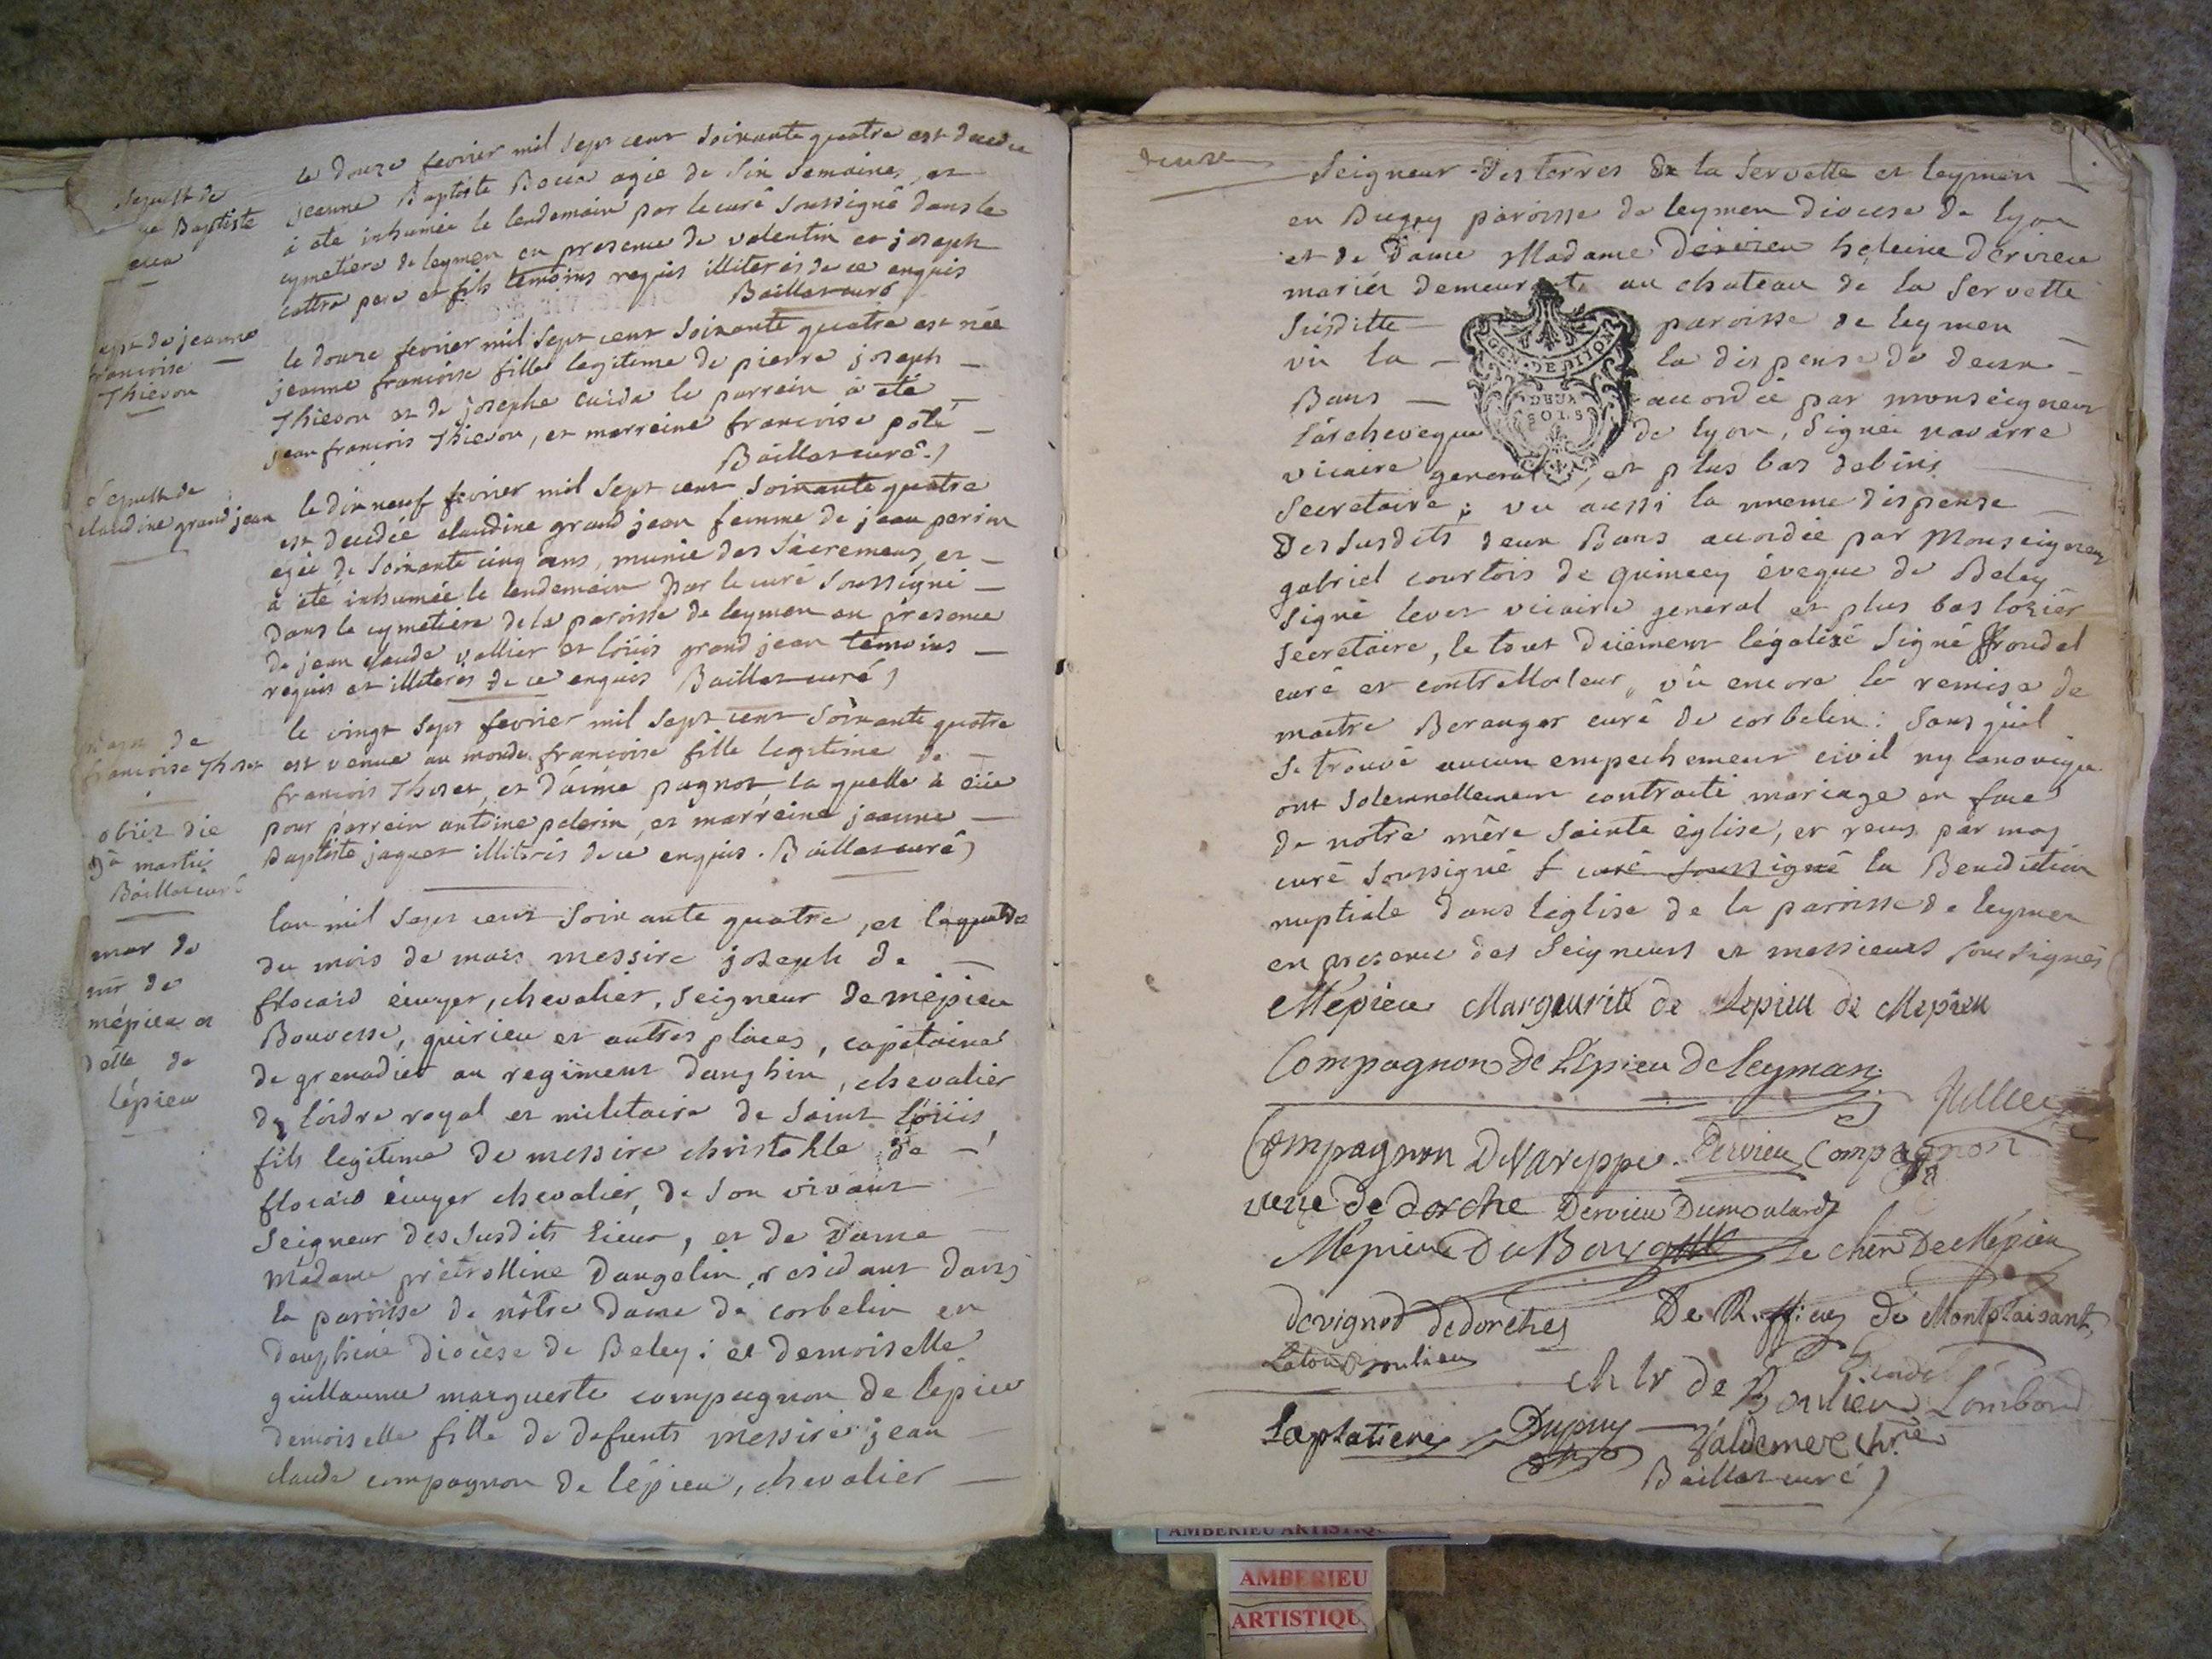 sepult de
ne Baptiste
le douze fevrier mil sept cent soixante quatre est decedee
jeanne Baptiste agie de six semaines, et
à ete inhumée le lendemain par le curé soussigné dans le
cymetiere de leymen en presence de valentin et joseph
pere et fils temoins requis illiterés de ce enquis
Baillat curé
bapt de jeanne
francoise
Thievon
le douze fevrier mil sept cent soixante quatre est née
jeanne francoise fille legitime de pierre joseph
Thievon et de josephe le parrein à eté
jean francois Thievon, et marreine francoise
Baillat curé
sepult de
claudine grand jean
le dix neuf fevrier mil sept cent soixante quatre
est decedée claudine grand jean femme de jean
agie de soixante cinq ans, munie des sacremens, et
à ete inhumée le lendemain par le curé soussigné
dans le cymetiere de la paroisse de leymen en presence
de jean claude vallier et loüis grand jean temoins
requis et illiterés de ce enquis Baillat curé
de
francoise Thoset
le vingt sept fevrier mil sept cent soixante quatre
est venue au monde francoise fille legitime de
francois Thoset, et d'aimé pagnot la quelle à eüe
pour parrein antoine pelerin, et marreine jeanne
Baptiste jaquet illiterés de ce enquis. Baillat curé
obiit die
9a martii
Baillat curé
mar de
mr de
mépieu et
delle de
lépieu
lan mil sept cent soixante quatre, et le quatre
du mois de mars messire joseph de
flocard écuyer, chevalier, seigneur de mépieu
Bouvesse, quirieu et autres places, capitaine
de grenadier au regiment dauphin, chevalier
de l'ordre royal et militaire de saint loüis,
fils legitime de messire christophle de
flocard ecuyer chevalier, de son vivant
seigneur des susdits lieux, et de Dame
Madame dangelin, residant dans
la paroisse de nôtre dame de corbelin en
dauphiné diocèse de Beley: et demoiselle
guillaume marguerite compagnon de lépieu
demoiselle fille de defunts messire jean
claude compagnon de lépieu, chevalier
Seigneur des terres de la servette et leymen
en Bugey paroisse de leymen diocese de lyon
et de Dame Madame dervieu heleine dervieu
mariés demeurant au chateau de la servette
susditte paroisse de leymen
vü la la dispense de deux
Bans accordée par monseigneur
l'archeveque de lyon, signée navarre
vicaire general, et plus bas
secretaire; vu aussi la meme dispense
des susdits deux Bans accordée par Monseigneur
gabriel courtois de quincey éveque de Beley
signé vicaire general et plus bas
secretaire, le tout düement légalisé signé
curé et contrôlleur, vü encore la remise de
maitre Beranger curé de corbelin: sans qu'il
se trouvé aucun empechement civil ny canonique
ont solemnellement contracté mariage en face
de notre mère sainte église, et reçus par moy
curé soussigné curé soussigné la Benediction
nuptiale dans l'eglise de la paroisse de leymen
en presence des seigneurs et messieurs soussignés
GEN. DE DIJON
DEUX
SOLS
Mépieu Margueritte de Lepieu de Mepieu
Compagnon De l'Épieu De leyman
Compagnon DeVareppe. Dervieu Compagnon
veuve De dorche Dervieu Dumoulard
Mépieu Du Bourg le cher De Mépieu
Devignod dedorches De Montplaisant
chlr de Boulieu Lombard
Laplatiere Dupuy
Baillat curé
AMBERIEU ARTISTIQUE
AMBERIEU
ARTISTIQU